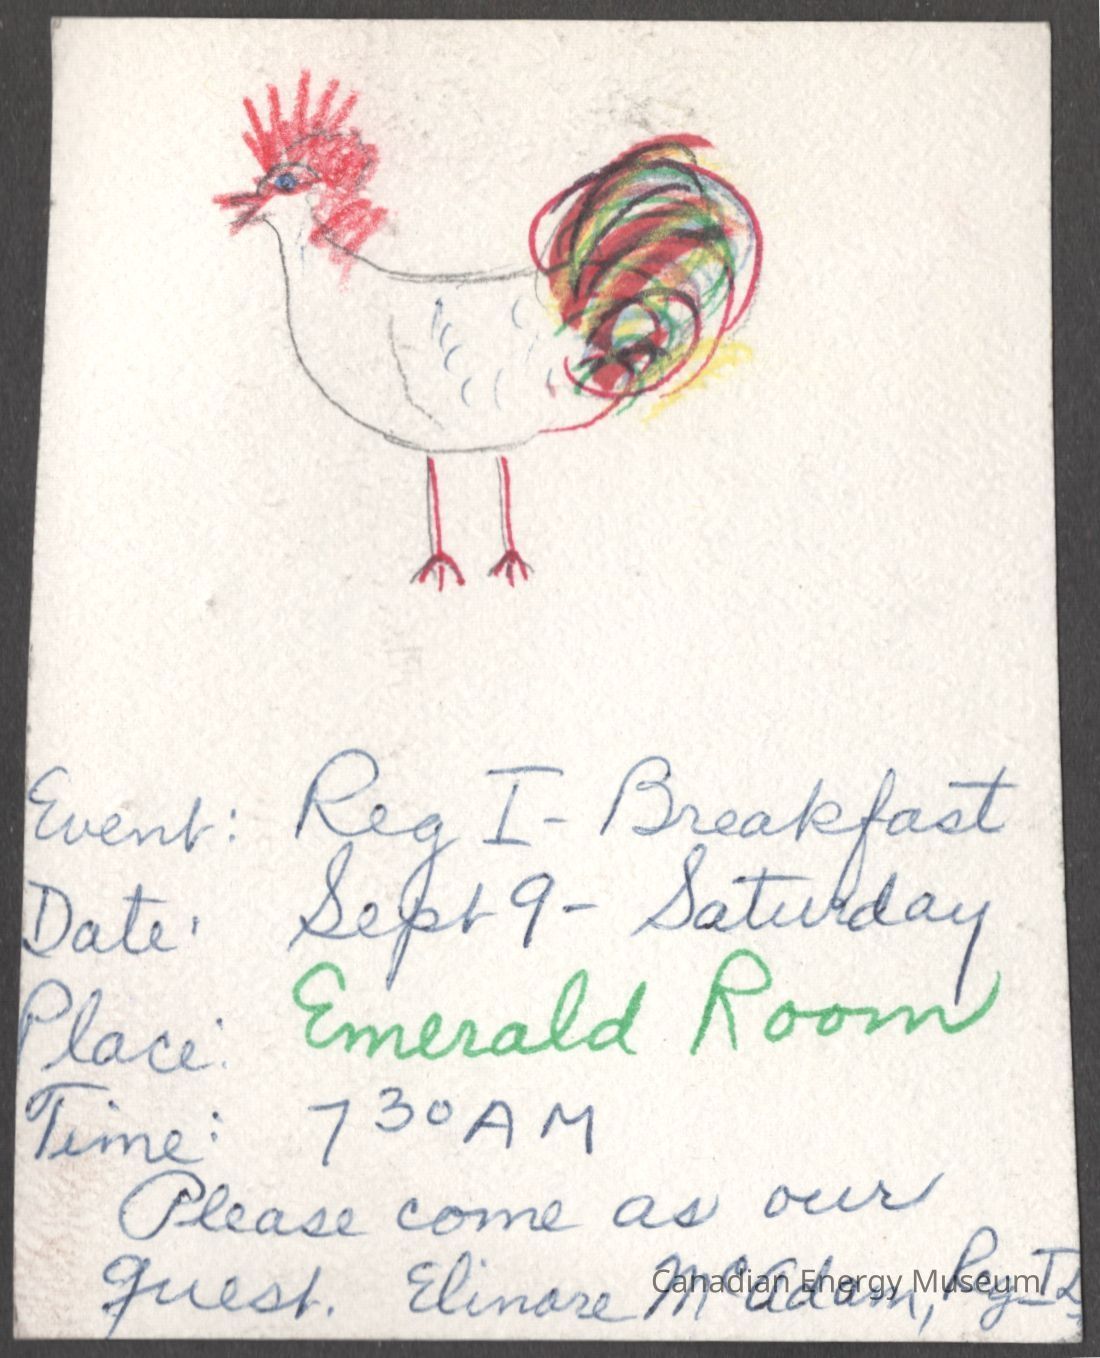 Event: Reg I - Breakfast
Date: Sept 9 - Saturday
Place: Emerald Room
Time: 7 30 AM
Please come as our
guest. Elinore McAdam, Reg I
Canadian Energy Museum